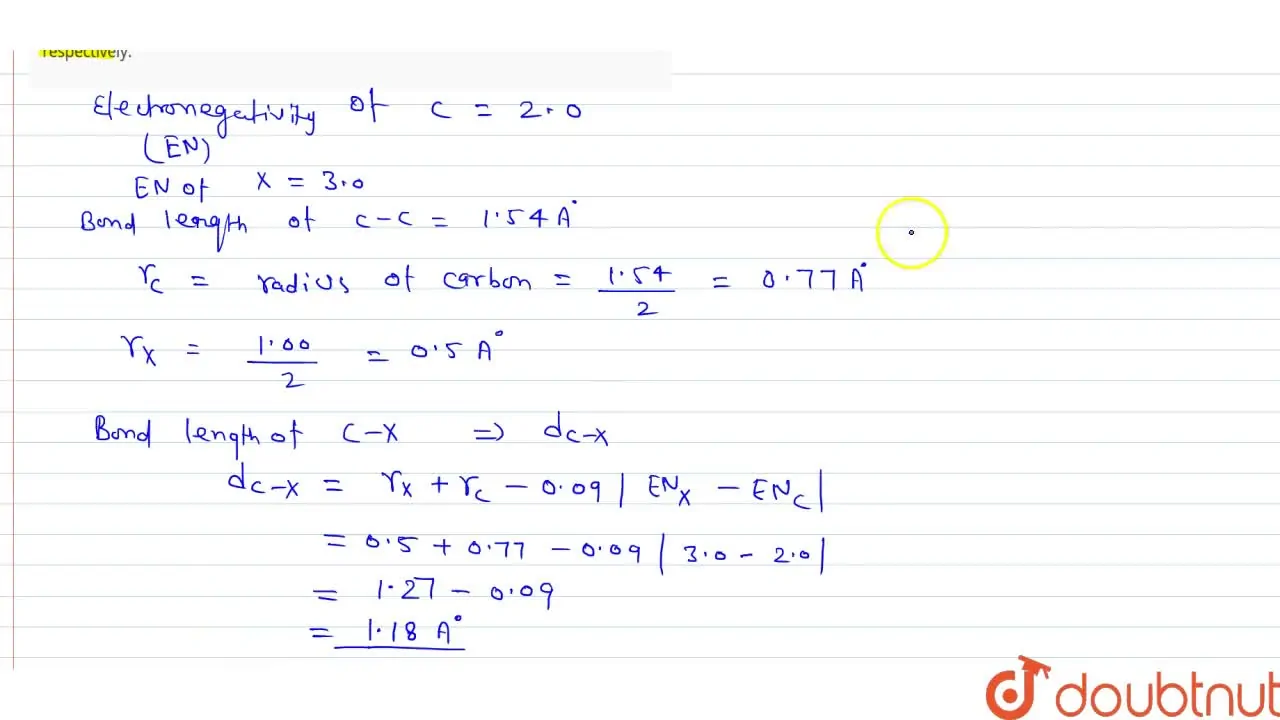 respectively.
Electronegativity of C = 2.0
(EN)
EN of X = 3.0
Bond length of C-C = 1.54 A°
rC = radius of carbon = 1.54/2 = 0.77 A°
rX = 1.00/2 = 0.5 A°
Bond length of C-X ⇒ dC-X
dC-X = rX + rC - 0.09 | ENX - ENC |
= 0.5 + 0.77 - 0.09 | 3.0 - 2.0 |
= 1.27 - 0.09
= 1.18 A°
doubtnut